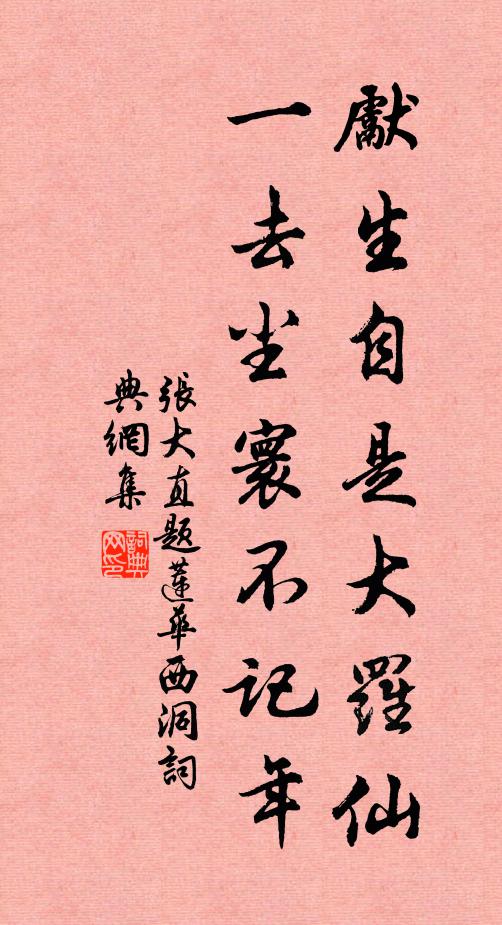 獻生自是大羅仙
一去尘寰不记年
張大直题蓮華西洞詞
典網集
詞典网印